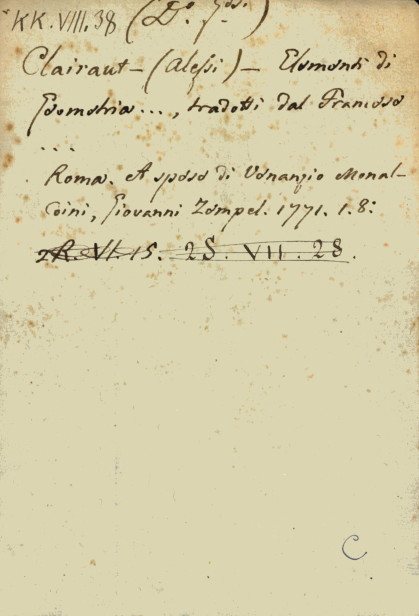 KK.VIII.38 (D.º
Clairaut - (Alessi) - Elementi di
Geometria..., tradotti dal Francese
...
Roma. A spese di Venanzio Monal-
dini, Giovanni Zempel. 1771. 1.8:
2R.VI.15. 2S.VII.28.
C